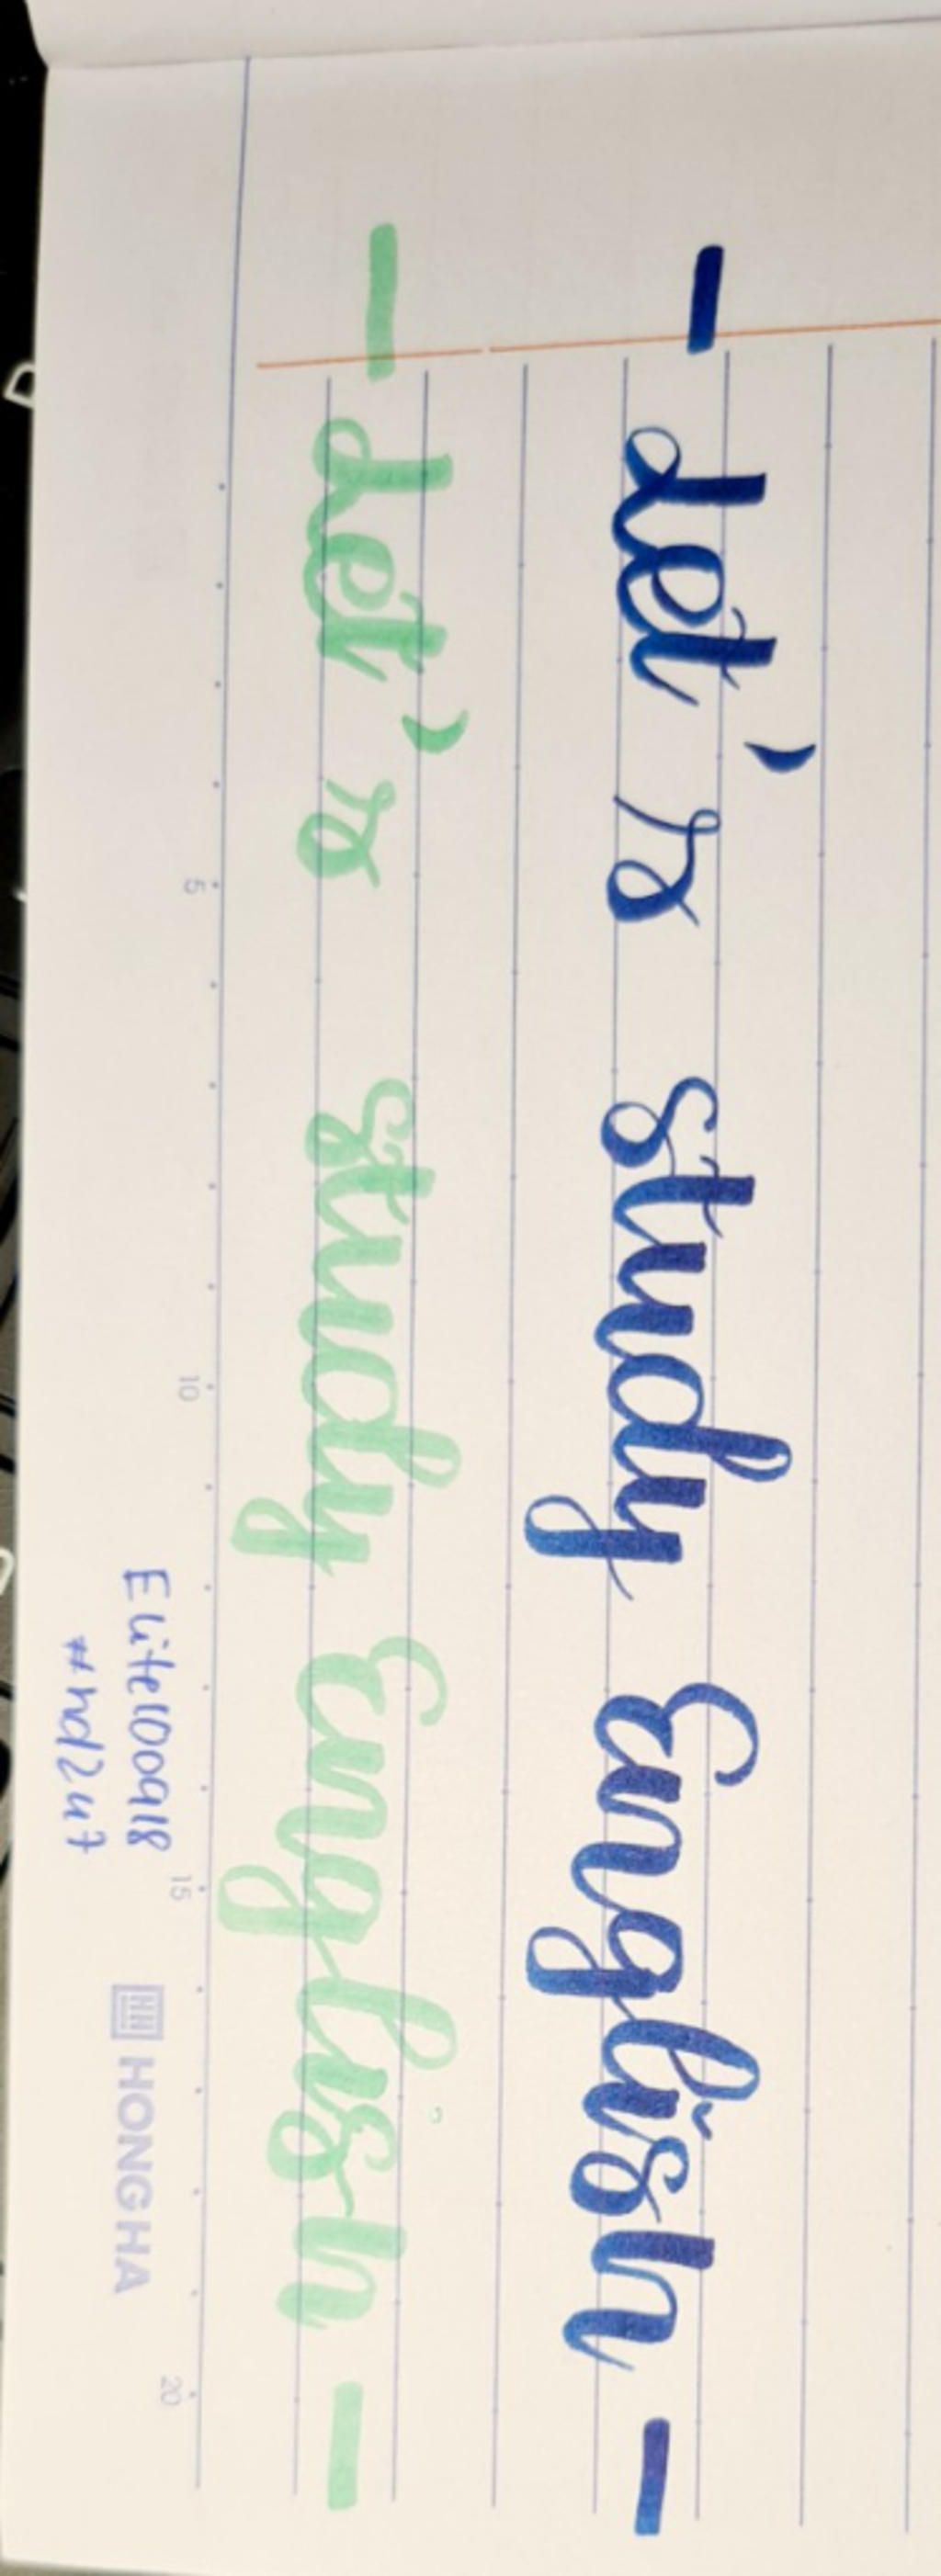 — Let's study English —
— Let's study English —
5 10 15 20
Elite100918
#hd247
HONG HA